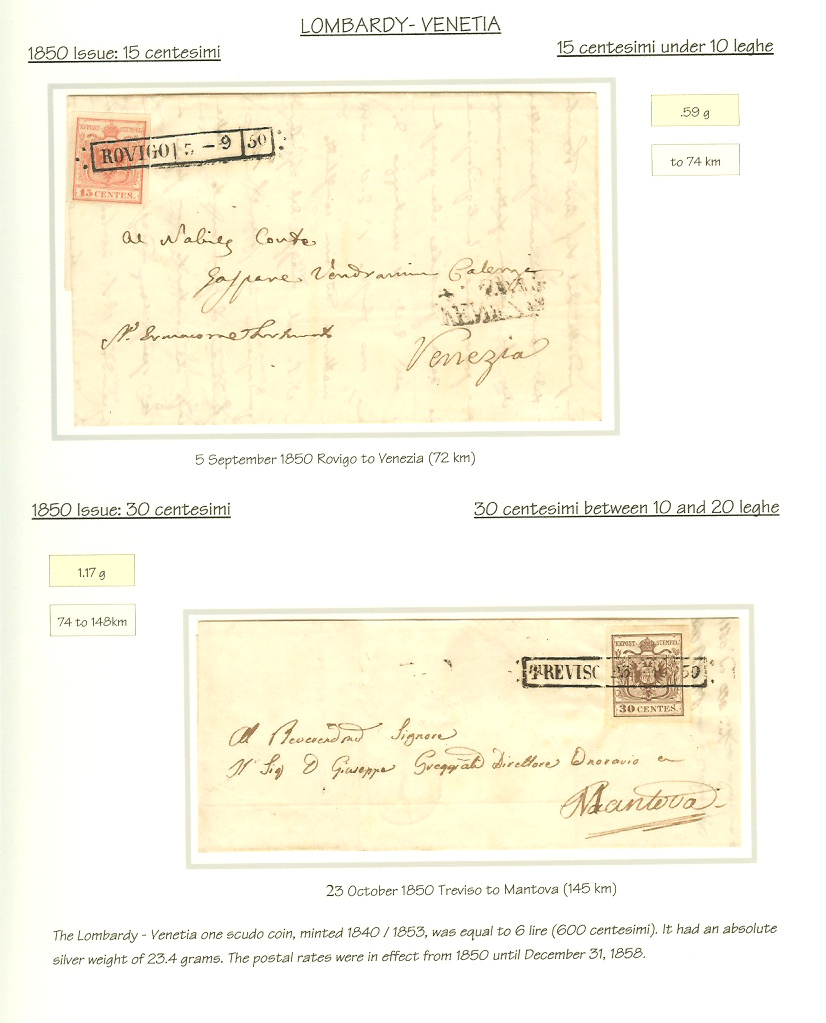 LOMBARDY- VENETIA
1850 Issue: 15 centesimi
15 centesimi under 10 leghe
.59 g
to 74 km
15 CENTES.
ROVIGO 5 - 9 50
Al Nobile Conte
Gaspare Vendramin Calergi
Venezia
5 September 1850 Rovigo to Venezia (72 km)
1850 Issue: 30 centesimi
30 centesimi between 10 and 20 leghe
1.17 g
74 to 148km
STEMPEL
TREVISO 50
30 CENTES.
Al Reverendmo Signore
Il Sig D Giuseppe Direttore Onorario in
Mantova
23 October 1850 Treviso to Mantova (145 km)
The Lombardy - Venetia one scudo coin, minted 1840 / 1853, was equal to 6 lire (600 centesimi). It had an absolute
silver weight of 23.4 grams. The postal rates were in effect from 1850 until December 31, 1858.